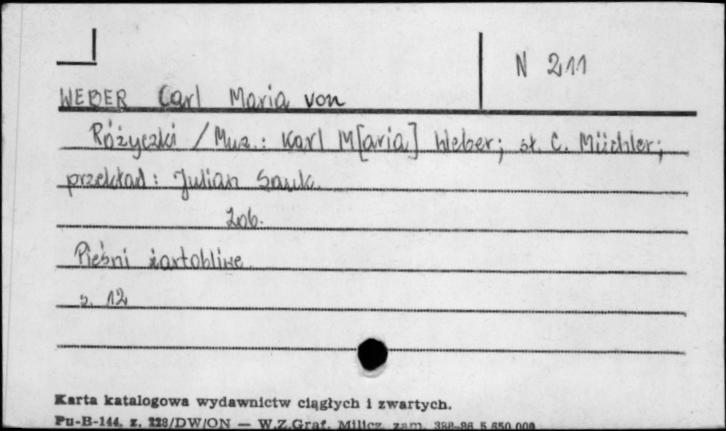 N 211
WEBER Carl Maria von
Różyczki / Muz.: Karl M[aria] Weber; sł. C. Müchler;
przekład: Julian Sauk.
Zob.
Pieśni żartobliwe
s. 12
Karta katalogowa wydawnictw ciągłych i zwartych.
Pu-B-144. z. 228/DW/ON — W.Z.Graf. Milicz zam. 388-86 5.650.000